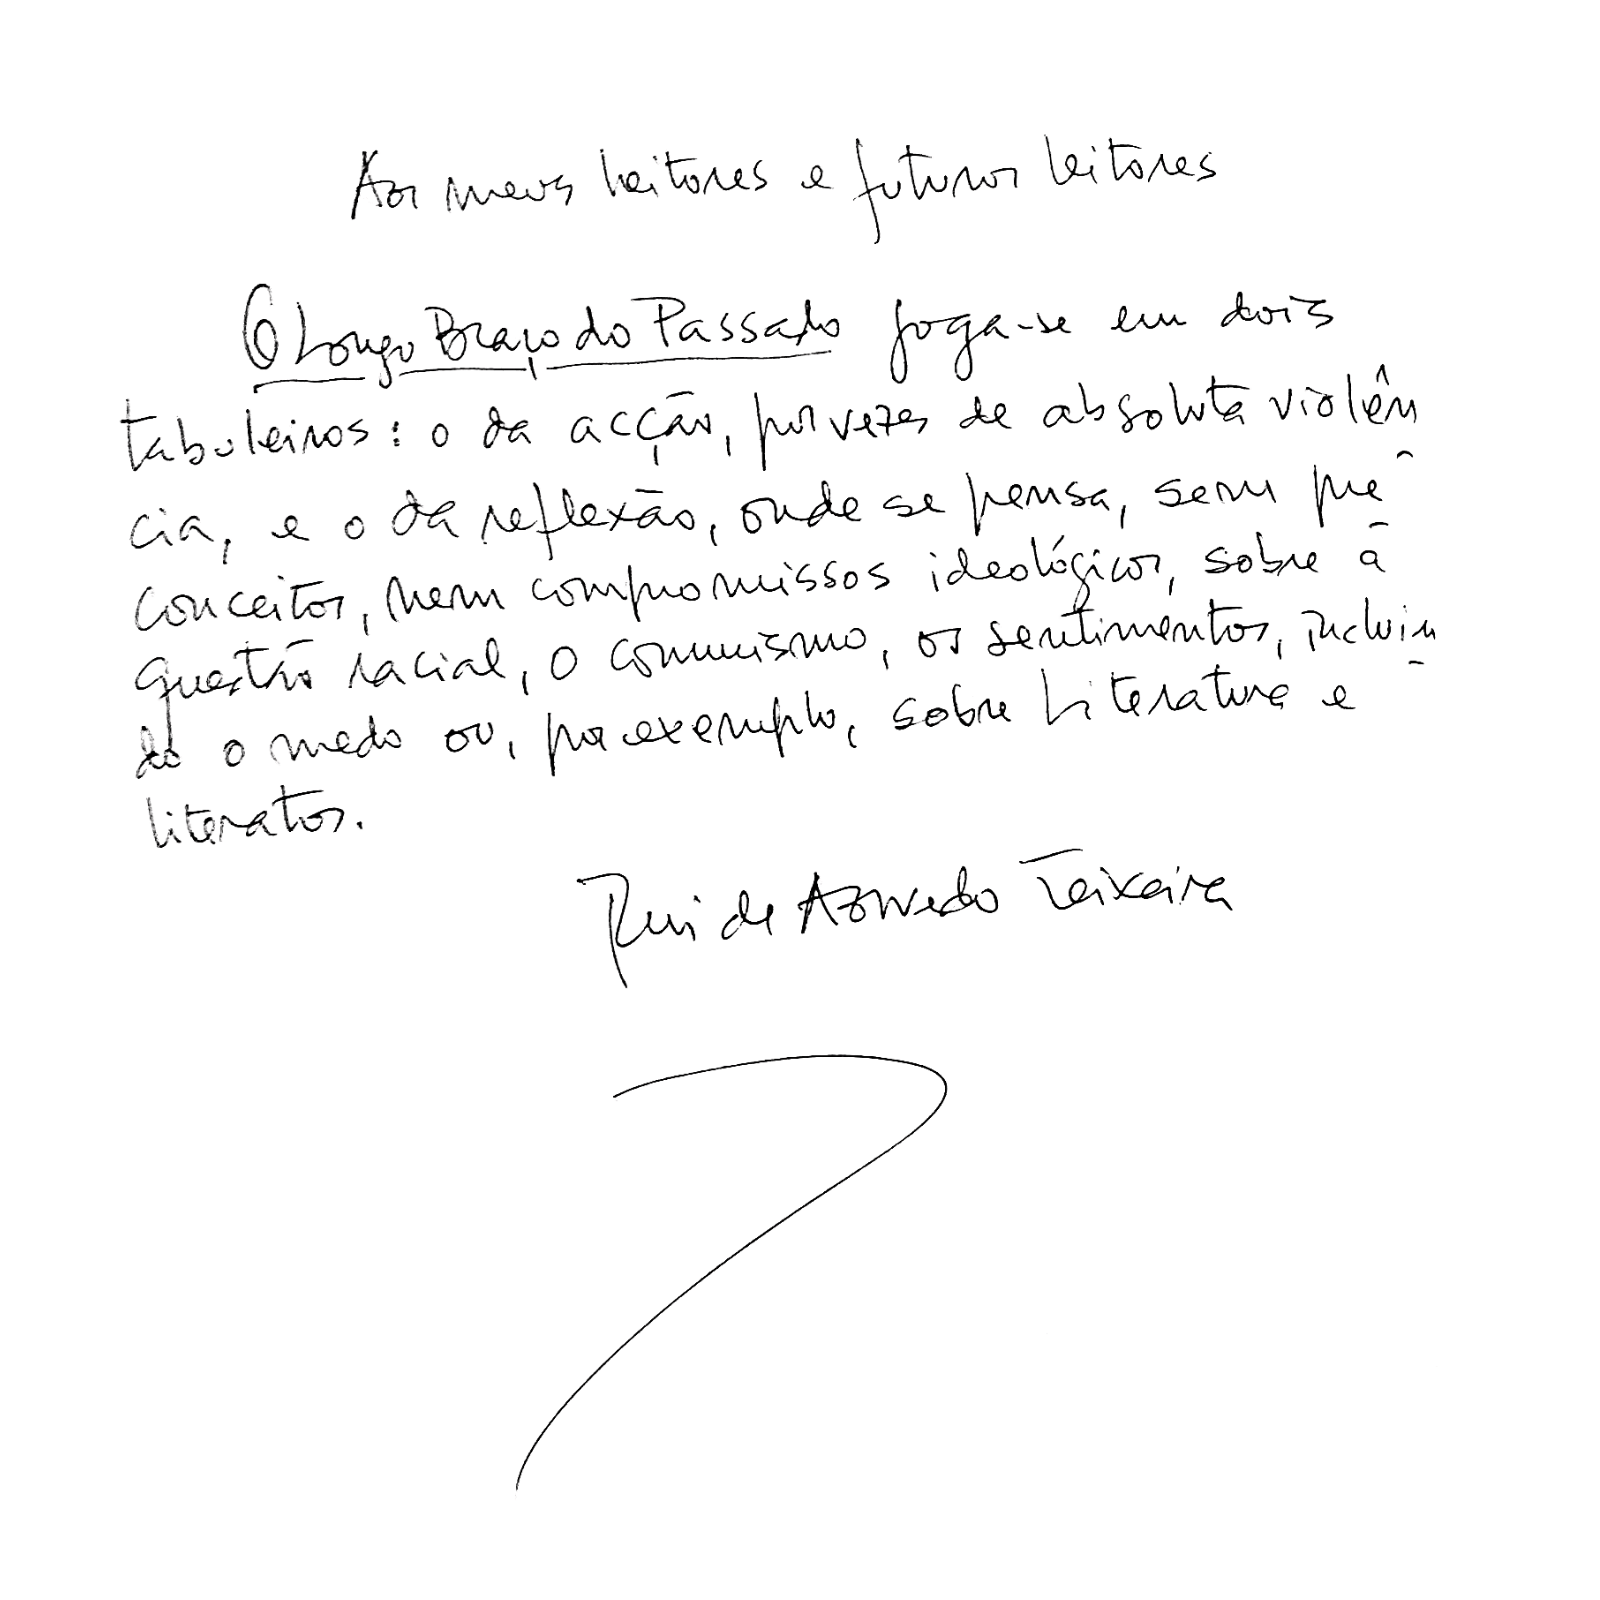 Aos meus leitores e futuros leitores
O Longo Braço do Passado joga-se em dois
tabuleiros: o da acção, por vezes de absoluta violên
cia, e o da reflexão, onde se pensa, sem pre
conceitos, nem compromissos ideológicos, sobre a
questão racial, o comunismo, os sentimentos, incluin
do o medo ou, por exemplo, sobre Literatura e
literatos.
Rui de Azevedo Teixeira